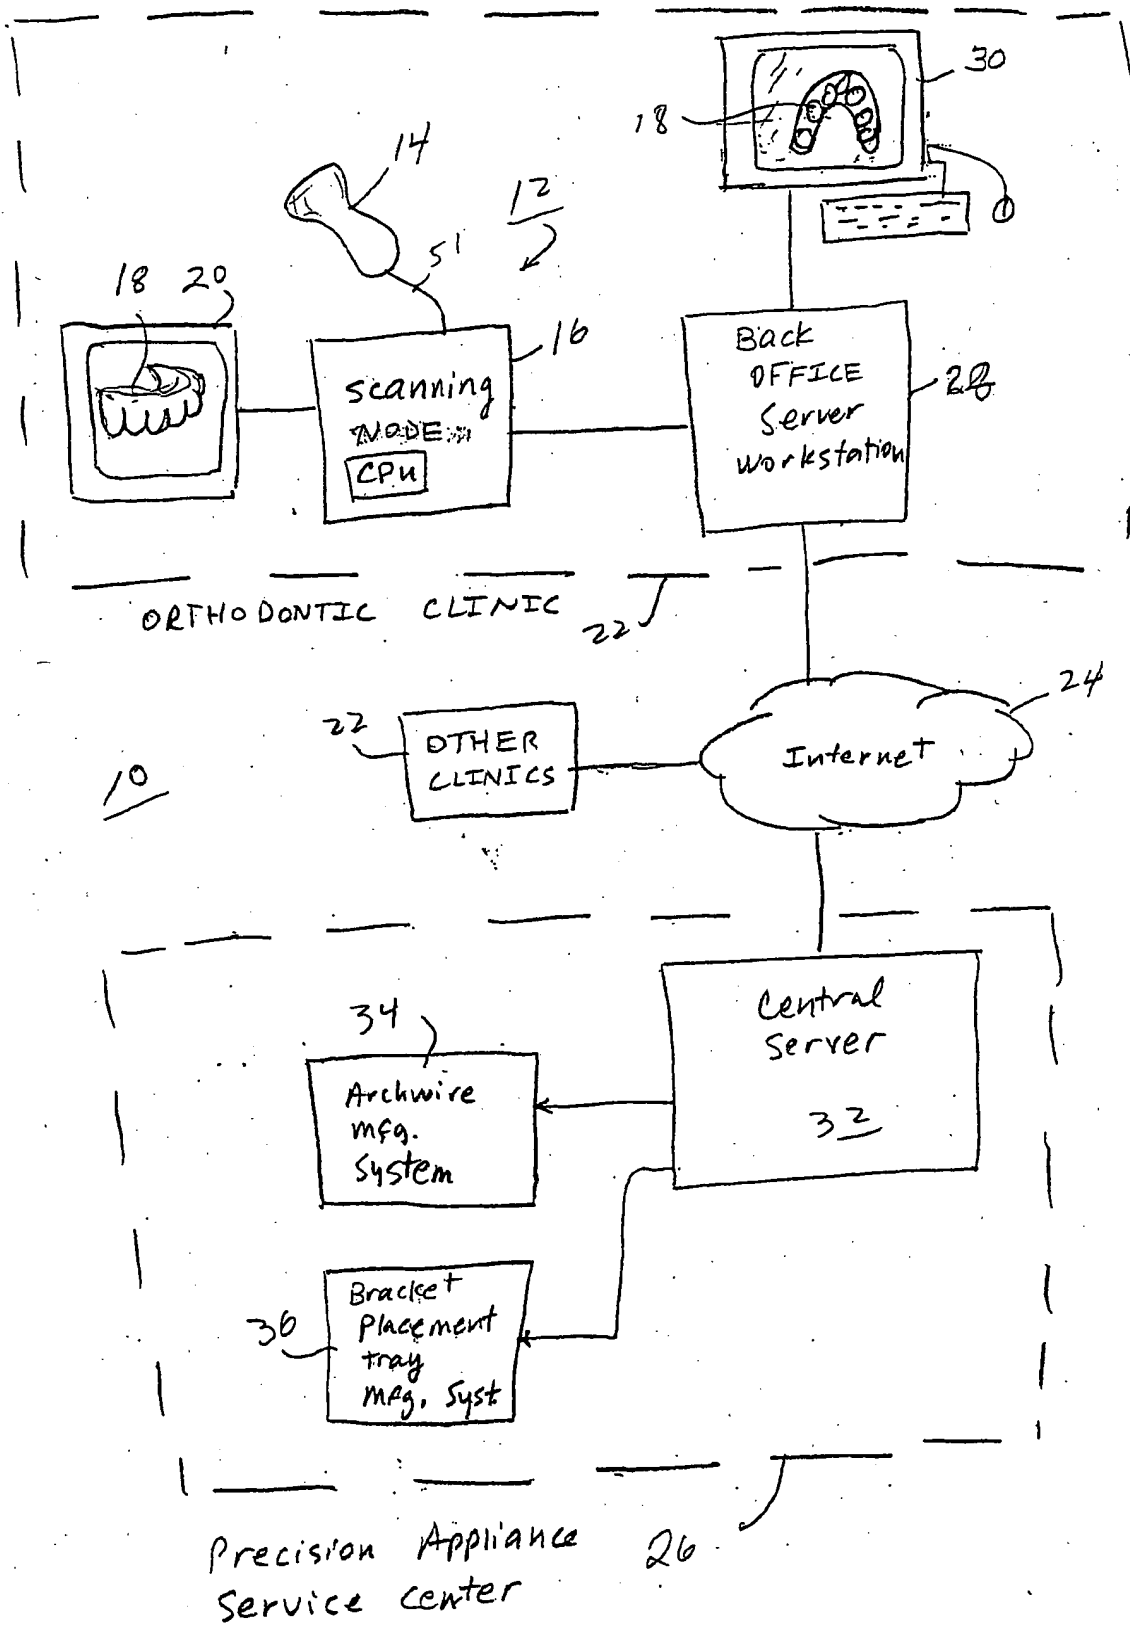 30
18
14
12
51
18
20
16
Scanning
NODE
CPU
Back
OFFICE
Server
Workstation
28
ORTHODONTIC CLINIC
22
24
Internet
22
OTHER
CLINICS
10
Central
Server
32
34
Archwire
mfg.
System
36
Bracket
Placement
tray
mfg. Syst
Precision Appliance
Service center
26